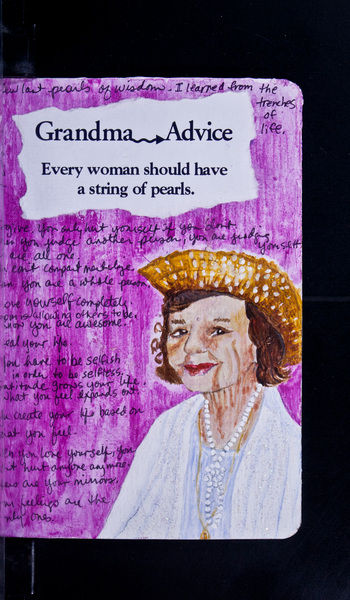 last pearls of wisdom - I learned from the
trenches
of
life.
Grandma Advice
Every woman should have
a string of pearls.
give. You only hurt yourself if you don't.
you judge another person, you are judging
yourself
are all one.
can't compartmentalize.
you are a whole person.
love yourself completely.
is allowing others to be.
know you are awesome.
your life.
You have to be selfish
in order to be selfless.
gratitude grows your life.
what you feel expands out.
create your life based on
what you feel.
you love yourself, you
hurt anyone anymore.
are your mirrors.
feelings are the
only ones.